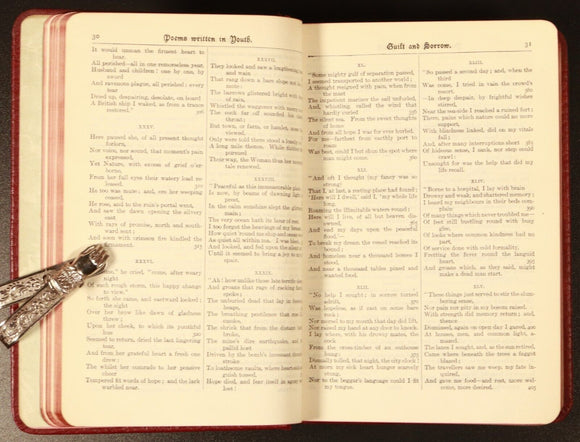 30
Poems written in Youth.
It would unman the firmest heart to
hear.
All perished—all in one remorseless year,
Husband and children! one by one, by
sword
And ravenous plague, all perished: every
tear
Dried up, despairing, desolate, on board
A British ship I waked, as from a trance
restored."
XXXV.
Here paused she, of all present thought
forlorn,
Nor voice, nor sound, that moment's pain
expressed,
Yet Nature, with excess of grief o'er-
borne,
From her full eyes their watery load re-
leased.
He too was mute; and, ere her weeping
ceased,
He rose, and to the ruin's portal went,
And saw the dawn opening the silvery
east
With rays of promise, north and south-
ward sent;
And soon with crimson fire kindled the
firmament.
XXXVI.
he cried, "come, after weary
night
Of such rough storm, this happy change
to view."
So forth she came, and eastward looked;
the sight
Over her brow like dawn of gladness
threw;
Upon her cheek, to which its youthful
hue
Seemed to return, dried the last lingering
tear,
And from her grateful heart a fresh one
drew:
The whilst her comrade to her pensive
cheer
Tempered fit words of hope; and the lark
warbled near.
XXXVII.
They looked and saw a lengthening
and wain
That rang down a bare slope not
mote:
The barrows glistered bright with
of rain,
Whistled the waggoner with merry
The cock far off sounded his
throat;
But town, or farm, or hamlet, none
viewed,
Only were told there stood a lonely
A long mile thence. While thither
pursued
Their way, the Woman thus her mournful
tale renewed.
XXXVIII.
"Peaceful as this immeasurable plain
Is now, by beams of dawning light
prest,
In the calm sunshine slept the glittering
main;
The very ocean hath its hour of rest.
I too forgot the heavings of my breast.
How quiet 'round me ship and ocean were!
As quiet all within me. I was blest,
And looked, and fed upon the silent air
Until it seemed to bring a joy to my
spair.
XXXIX.
"Ah! how unlike those
And groans that rage of racking famine
spoke;
The unburied dead that lay in festering
heaps,
The breathing pestilence that rose like
smoke,
The shriek that from the distant battle
broke,
The mine's dire earthquake, and the
pallid host
Driven by the bomb's incessant thunder-
stroke
To loathsome vaults, where heart-sick
guish tossed,
Hope died, and fear itself in agony was
lost!
Guilt and Sorrow.
31
XL.
"Some mighty gulf of separation passed,
I seemed transported to another world;
A thought resigned with pain, when from
the mast
The impatient mariner the sail unfurled,
And, whistling, called the wind that
hardly curled
The silent sea. From the sweet thoughts
of home
And from all hope I was for ever hurled.
For me—farthest from earthly port to
roam
Was best, could I but shun the spot where
man might come.
XLI.
"And oft I thought (my fancy was so
strong)
That I, at last, a resting-place had found;
'Here will I dwell,' said I, 'my whole life
long,
Roaming the illimitable waters round;
Here will I live, of all but heaven dis-
owned,
And end my days upon the peaceful
flood.'—
To break my dream the vessel reached its
bound;
And homeless near a thousand homes I
stood,
And near a thousand tables pined and
wanted food.
XLII.
"No help I sought; in sorrow turned
adrift,
Was hopeless, as if cast on some bare
rock;
Nor morsel to my mouth that day did lift,
Nor raised my hand at any door to knock.
I lay where, with his drowsy mates, the
cock
From the cross-timber of an outhouse
hung:
Dismally tolled, that night, the city clock!
At morn my sick heart hunger scarcely
stung,
Nor to the beggar's language could I fit
my tongue.
XLIII.
"So passed a second day; and, when the
third
Was come, I tried in vain the crowd's
resort.
—In deep despair, by frightful wishes
stirred,
Near the sea-side I reached a ruined fort;
There, pains which nature could no more
support,
With blindness linked, did on my vitals
fall;
And, after many interruptions short
Of hideous sense, I sank, nor step could
crawl:
Unsought for was the help that did my
life recall.
XLIV.
"Borne to a hospital, I lay with brain
Drowsy and weak, and shattered memory;
I heard my neighbours in their beds com-
plain
Of many things which never troubled me—
Of feet still bustling round with busy
glee,
Of looks where common kindness had no
part,
Of service done with cold formality,
Fretting the fever round the languid
heart,
And groans which, as they said, might
make a dead man start.
XLV.
"These things just served to stir the slum-
bering sense,
Nor pain nor pity in my bosom raised.
With strength did memory return; and,
thence
Dismissed, again on open day I gazed,
At houses, men, and common light, a-
mazed.
The lanes I sought, and, as the sun retired,
Came where beneath the trees a faggot
blazed;
The travellers saw me weep, my fate in-
quired,
And gave me food—and rest, more wel-
come, more desired.
405